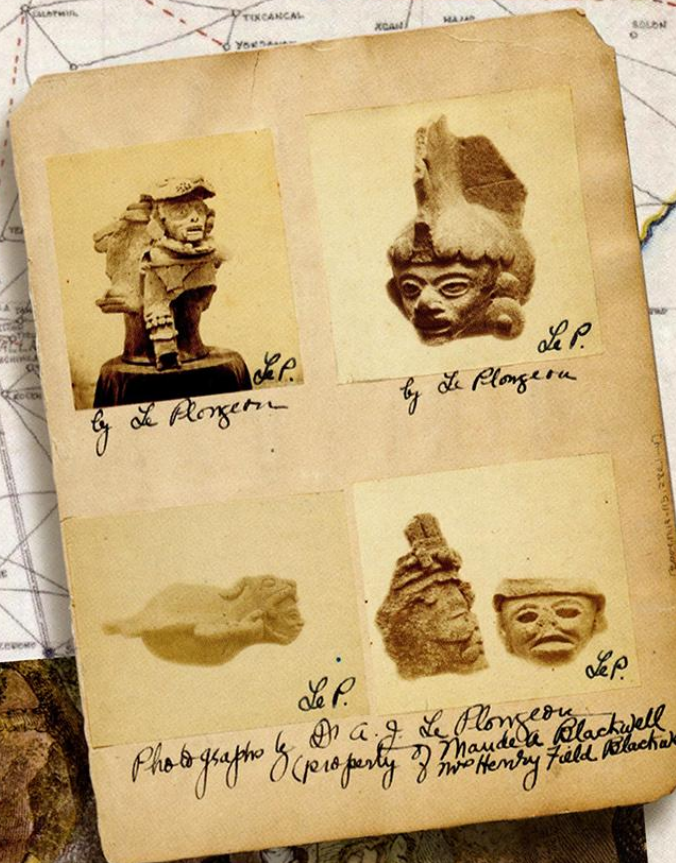 TIXCANCAL
XCAN
SOLON
Le P.
Le P.
by Le Plongeon
by Le Plongeon
Le P.
Le P.
Photographs by Dr A. J. Le Plongeon
(property of Maude A Blackwell
Mrs Henry Field Blackw